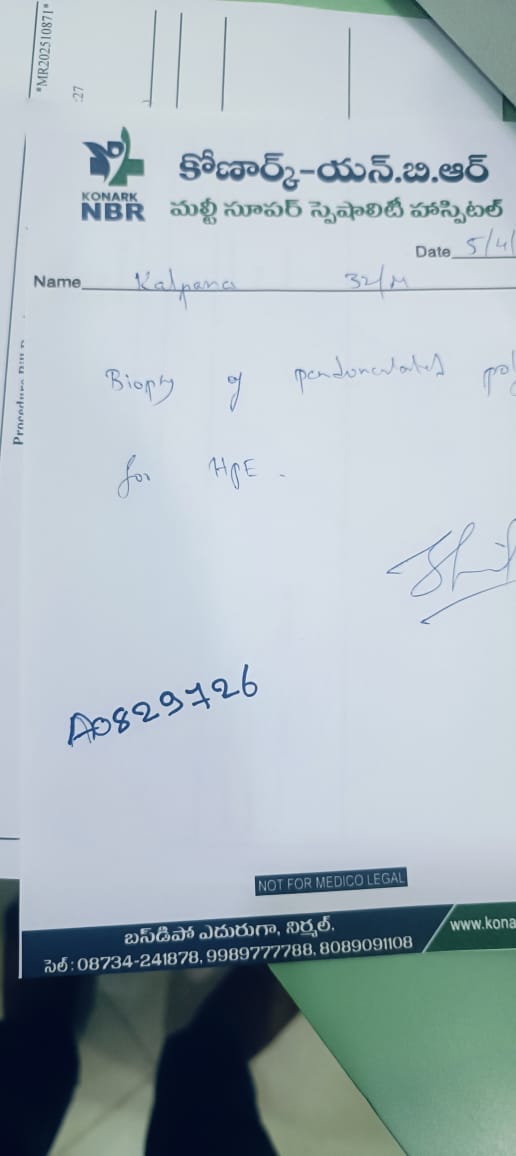 *MR202510871*
:27
కోణార్క్-యన్.బి.ఆర్
KONARK
NBR
మల్టీ సూపర్ స్పెషాలిటీ హాస్పిటల్
Date 5/4/
Name Kalpana 32/M
Biopsy of pendunculated pol
for HPE.
A0829726
NOT FOR MEDICO LEGAL
బస్‌డిపో ఎదురుగా, నిర్మల్.
సెల్ : 08734-241878, 9989777788, 8089091108
www.kona